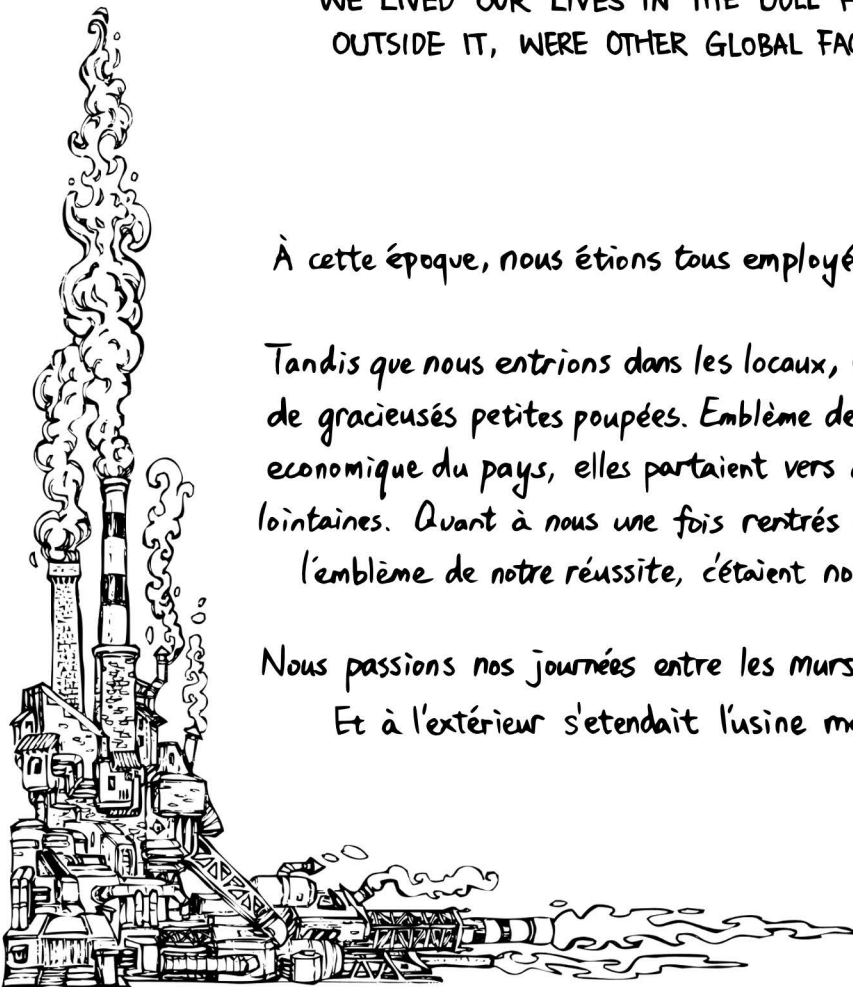 WE LIVED OUR LIVES IN THE DOLL
OUTSIDE IT, WERE OTHER GLOBAL
À cette époque, nous étions tous employé
Tandis que nous entrions dans les locaux,
de gracieusés petites poupées. Emblème de
economique du pays, elles partaient vers
lointaines. Quant à nous une fois rentrés
l'emblème de notre réussite, c'étaient no
Nous passions nos journées entre les murs
Et à l'extérieur s'etendait l'usine